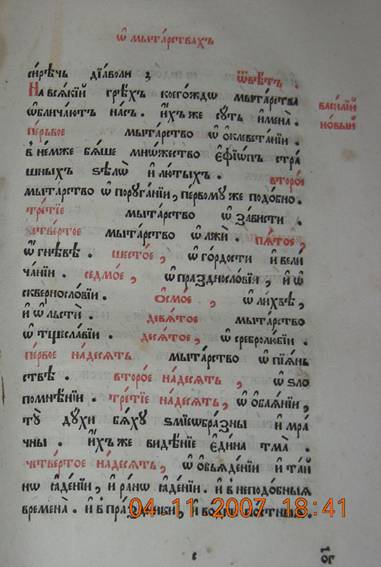 ѽ мыта́рствахъ
си́рѣчь дїа́воли з҃ ѿвѣ́тъ .
На вся́кїй грѣ́хъ коегѡ́ждѡ мыта́рства
ѡ҆блича́ютъ на́съ . и҆́хже су́ть и҆мена̀ .
васи́лїй
но́вый
пе́рвое мыта́рство ѡ҆ ѡ҆клевета́нїи .
в не́мже бѧ́ше мно́жество є҆фїѡ́пъ стра
шныхъ ѕѣлѡ̀ и҆ лю́тыхъ . второ́е
мыта́рство ѡ҆ поруга́нїи , пе́рвому же подо́бно .
тре́тїе мыта́рство ѡ҆ за́висти .
четве́ртое мыта́рство ѡ҆ лжѝ . пѧ́тое ,
ѡ҆ гнѣ́вѣ . шесто́е , ѡ҆ го́рдости и҆ вели
ча́нїи . седмо́е , ѡ҆ празднословїи , и҆ ѡ҆
скверносло́вїи . ѻ҆смо́е , ѡ҆ ли́хвѣ ,
и҆ ѡ҆ льсти . девѧ́тое мыта́рство
ѡ҆ тщесла́вїи . десѧ́тое , ѡ҆ сребролю́бїи .
пе́рвое на́десѧть мыта́рство ѡ҆ пїѧ́нь
ствѣ . второ́е на́десѧть , ѡ҆ ѕло
помне́нїи . тре́тїе на́десѧть , ѡ҆ ѡ҆баѧ́нїи ,
ту̀ ду́хи бѧ́ху ѕмїеѡбра́зны и҆ мра́
чны . и҆́хже ви́дѣнїе є҆ди́на тма̀ .
четве́ртое на́десѧть , ѡ҆ ѡ҆бъѧде́нїи и҆ та́й
нѡ ꙗ҆де́нїи , и҆ ра́нѡ ꙗ҆де́нїи . и҆ в неподо́бныѧ
времена̀ . и҆ в пра́здники , и҆
04 11 2007 18:41